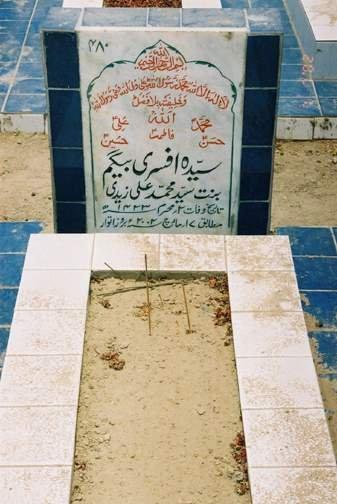 ۴۸۰
بسم اللہ الرحمن الرحیم
لا الہ الا اللہ محمد رسول اللہ علی ولی اللہ وصی رسول اللہ
وخلیفتہ بلا فصل
محمدؐ اللہ علیؑ
فاطمہؑ
حسنؑ حسینؑ
سیدہ افسری بیگم
بنت سید محمد علی زیدی
تاریخ وفات ۲ محرم ۱۴۲۳ھ
مطابق ۱۷ مارچ ۲۰۰۲ء بروز اتوار